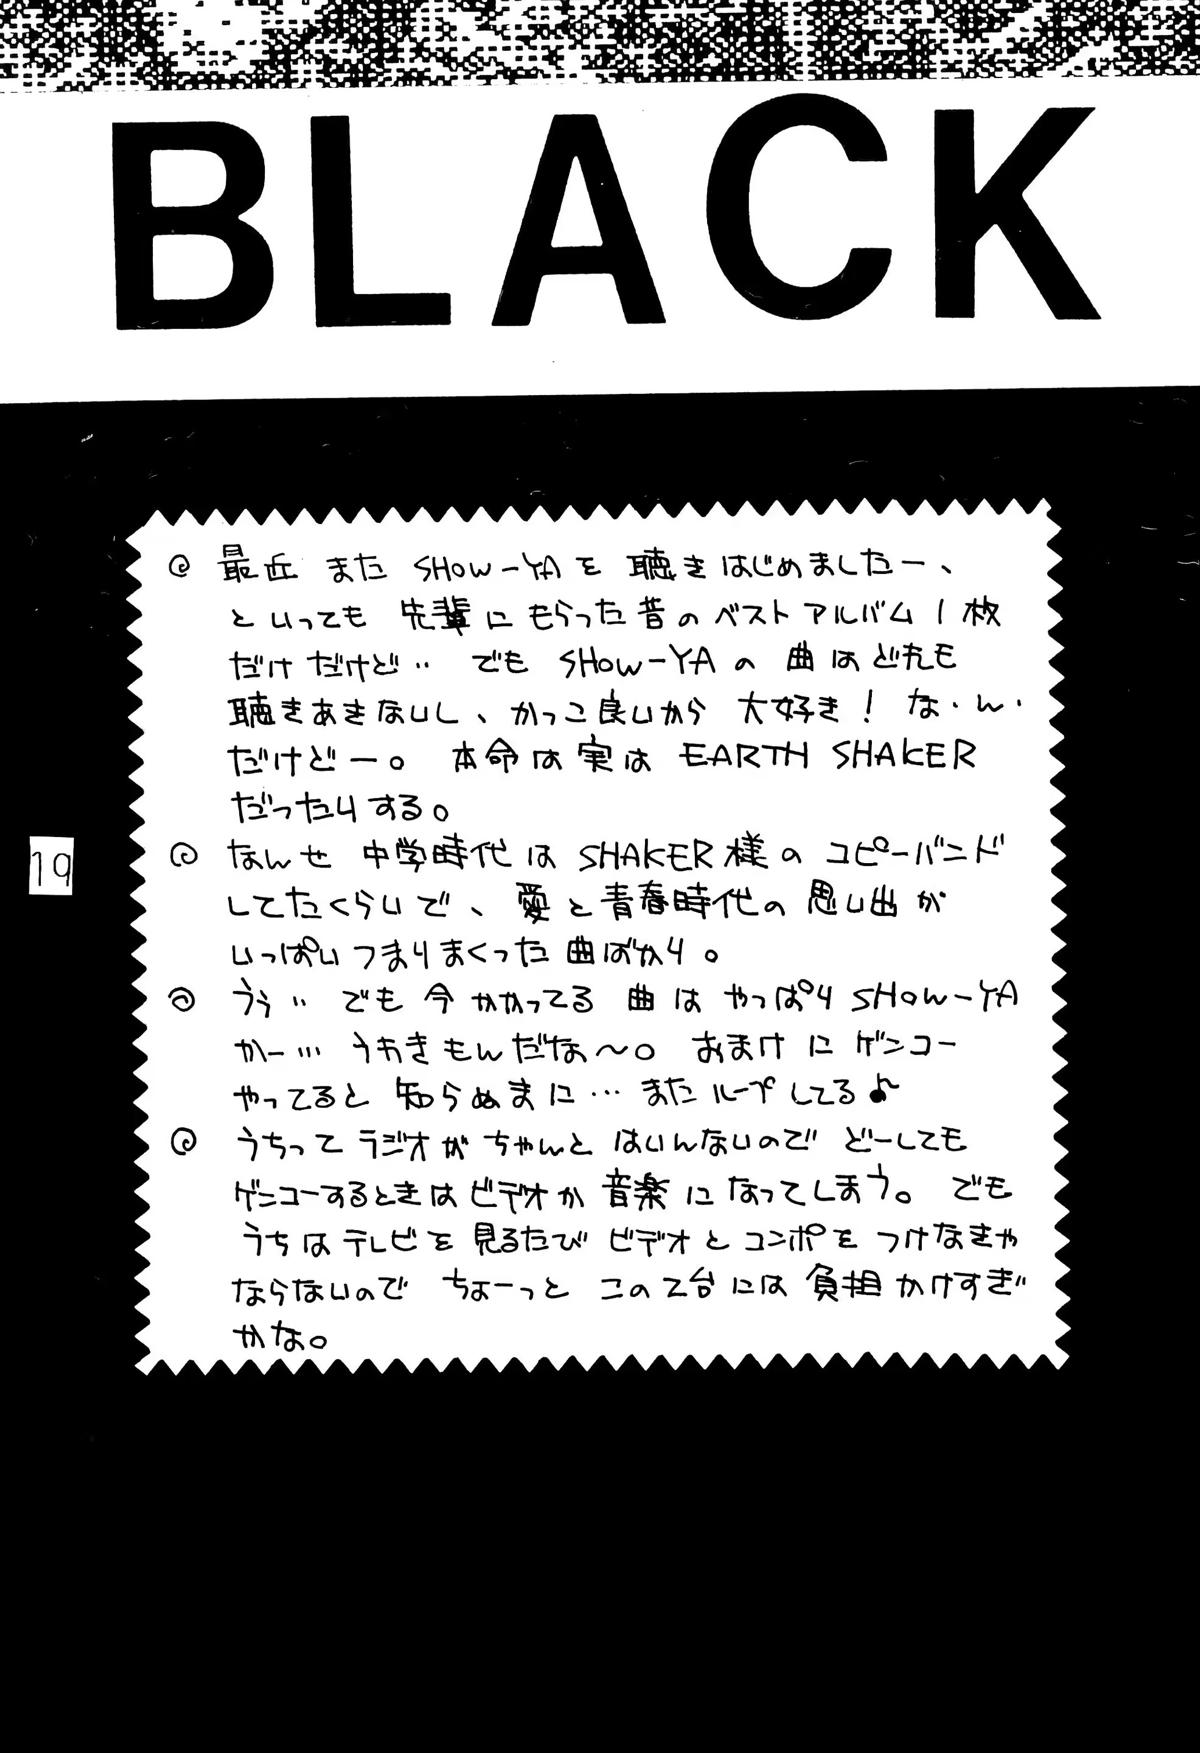 BLACK
最近 また SHOW-YAを 聴きはじめましたー、
といっても 先輩にもらった昔のベストアルバム1枚
だけだけど‥ でも SHOW-YAの 曲はどれも
聴きあきないし、かっこ良いから 大好き! な・ん・
だけどー。 本命は実は EARTH SHAKER
だったりする。
なんせ 中学時代は SHAKER様の コピーバンド
してたくらいで、愛と青春時代の思い出が
いっぱいつまりまくった曲ばかり。
うぅ‥ でも今かかってる 曲は やっぱり SHOW-YA
かー… うわきもんだな〜。 おまけに ゲンコー
やってると 知らぬまに… またループしてる♪
うちって ラジオがちゃんと はいんないので どーしても
ゲンコーするときはビデオか音楽になってしまう。 でも
うちはテレビを見るたび ビデオとコンポをつけなきゃ
ならないので ちょーっと この2台には負担かけすぎ
かな。
19